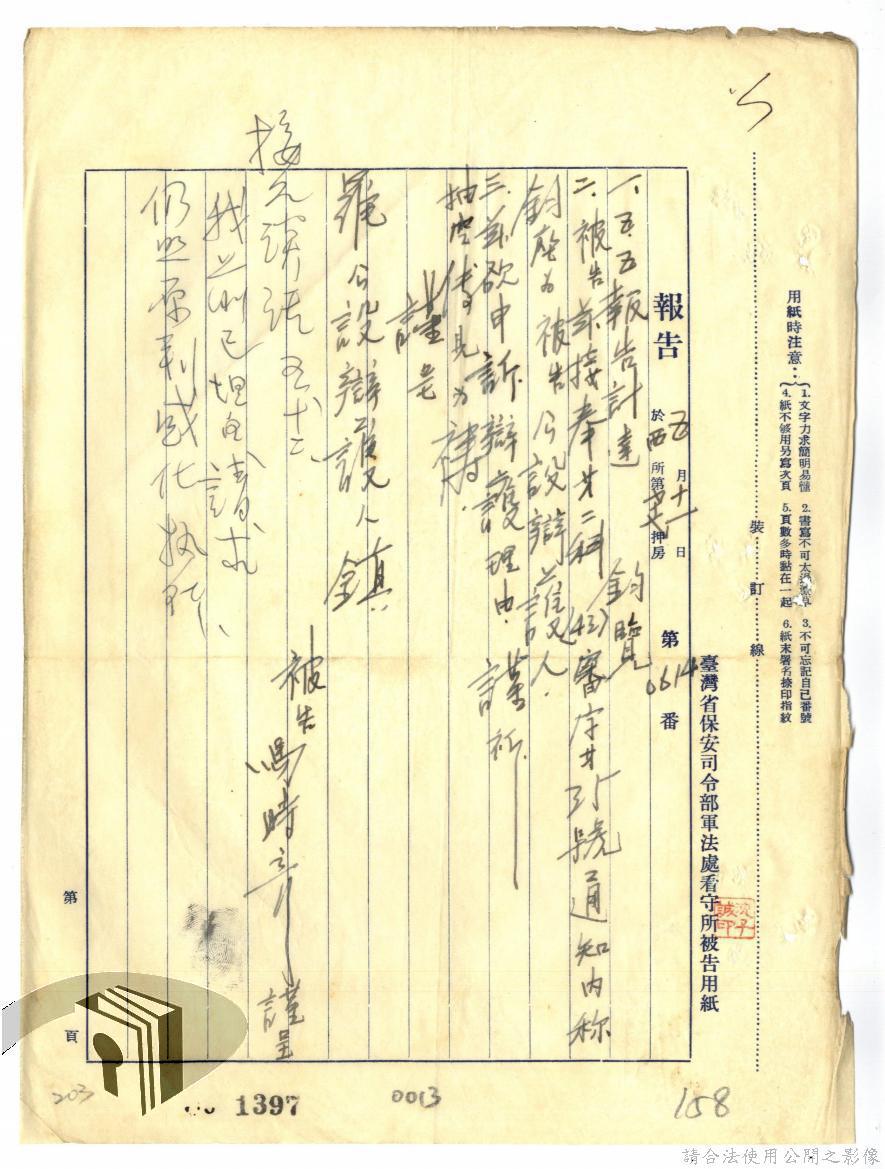 裝訂線
用紙時注意：
1. 文字力求簡明易懂 2. 書寫不可太潦草 3. 不可忘記自己番號
4. 紙不够用另寫次頁 5. 頁數多時黏在一起 6. 紙末署名捺印指紋
臺灣省保安司令部軍法處看守所被告用紙
報告 於 五月十一日 西所第 押房 第 0614 番
一、五五報告計達 鈞覽
二、被告茲接奉 審字 號通知內称
鈞座为被告公設辯護人、
三、茲欲申訴辯護理由、謹祈
抽空傳見为禱、
謹呈
羅公設辯護人 鎮
被告 馮時 謹呈
五十二
請求
仍 原判感化执行、
第 頁
203
1397
0013
158
請合法使用公開之影像